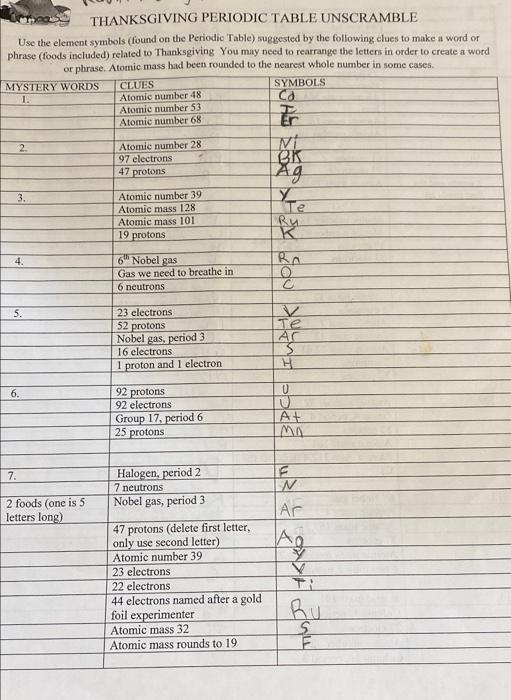 THANKSGIVING PERIODIC TABLE UNSCRAMBLE
Use the element symbols (found on the Periodic Table) suggested by the following clues to make a word or
phrase (foods included) related to Thanksgiving You may need to rearrange the letters in order to create a word
or phrase. Atomic mass had been rounded to the nearest whole number in some cases.
MYSTERY WORDS CLUES SYMBOLS
1. Atomic number 48 Cd
Atomic number 53 I
Atomic number 68 Er
2. Atomic number 28 Ni
97 electrons BK
47 protons Ag
3. Atomic number 39 Y
Atomic mass 128 Te
Atomic mass 101 Ru
19 protons K
4. 6th Nobel gas Rn
Gas we need to breathe in O
6 neutrons C
5. 23 electrons V
52 protons Te
Nobel gas, period 3 Ar
16 electrons S
1 proton and 1 electron H
6. 92 protons U
92 electrons U
Group 17, period 6 At
25 protons Mn
7. Halogen, period 2 F
7 neutrons N
2 foods (one is 5 Nobel gas, period 3 Ar
letters long)
47 protons (delete first letter,
only use second letter) Ag
Atomic number 39 Y
23 electrons V
22 electrons Ti
44 electrons named after a gold
foil experimenter Ru
Atomic mass 32 S
Atomic mass rounds to 19 F